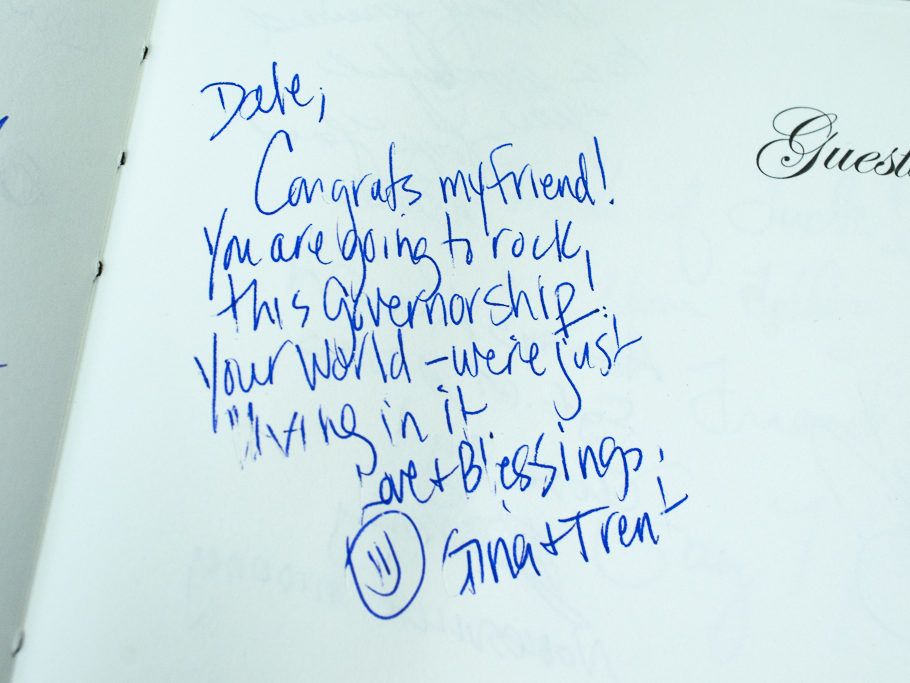 Dale,
Congrats my friend!
You are going to rock
this Governorship!
Your World - we're just
living in it
Love + Blessings,
Gina + Trent
Guest